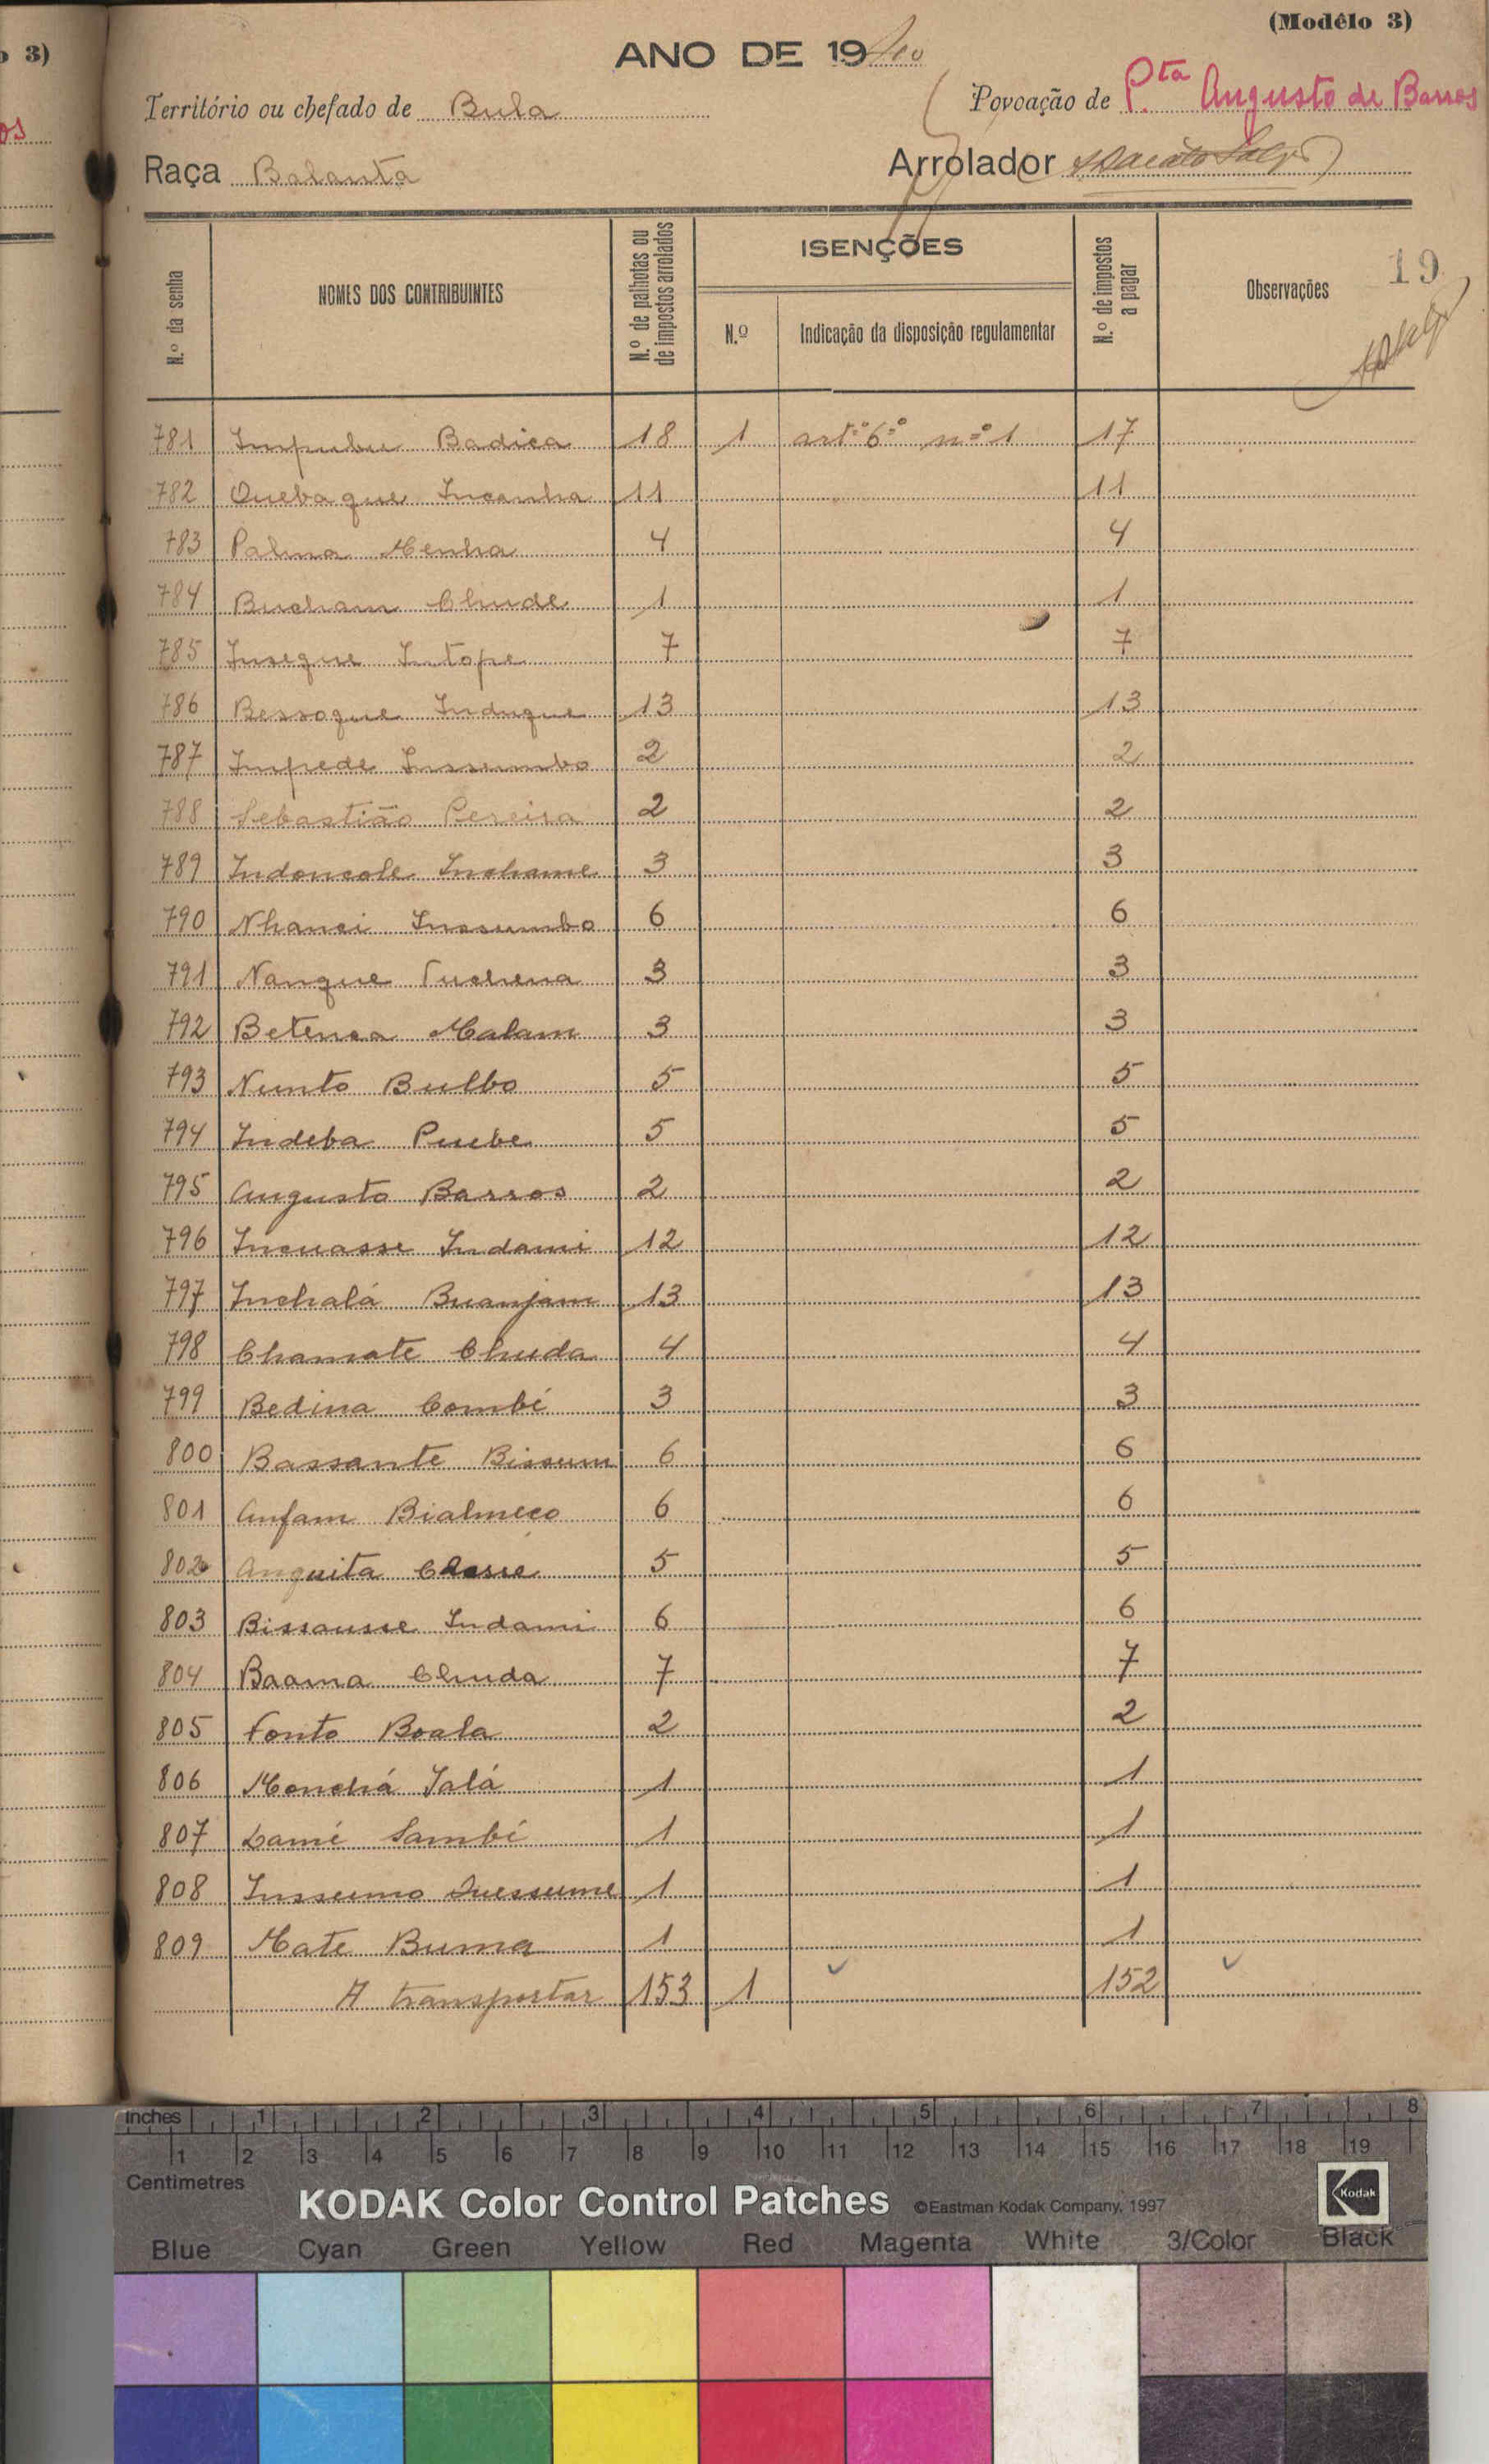 o 3)
os
(Modêlo 3)
ANO DE 19
Território ou chefado de Bula
Povoação de P.ta Augusto de Barros
Raça Balanta
Arrolador
N.º da senha
NOMES DOS CONTRIBUINTES
N.º de palhotas ou de impostos arrolados
ISENÇÕES
N.º
Indicação da disposição regulamentar
N.º de impostos a pagar
Observações
19
781 Impubu Badica 18 1 art.º 6.º n.º 1 17
782 Quebaque Incanha 11 11
783 Palma Menha 4 4
784 Bucham Chude 1 1
785 Insegue Intope 7 7
786 Bessoque Induque 13 13
787 Impede Inssumbo 2 2
788 Sebastião Pereira 2 2
789 Indoncole Inchame 3 3
790 Nhanci Inssumbo 6 6
791 Nanque Tuchena 3 3
792 Betenca Malam 3 3
793 Nunto Bulbo 5 5
794 Indeba Puebe 5 5
795 Augusto Barros 2 2
796 Incuasse Indami 12 12
797 Inchalá Buanjam 13 13
798 Chamate Chuda 4 4
799 Bedina Combé 3 3
800 Bassante Bissum 6 6
801 Anfam Bialmeco 6 6
802 Anquita Classe 5 5
803 Bissausse Indami 6 6
804 Baama Chuda 7 7
805 Fonto Boala 2 2
806 Monchá Jalá 1 1
807 Lamé Sambé 1 1
808 Inssumo Quessume 1 1
809 Mate Buma 1 1
A transportar 153 1 152
inches 1 2 3 4 5 6 7 8
1 2 3 4 5 6 7 8 9 10 11 12 13 14 15 16 17 18 19
Centimetres
KODAK Color Control Patches ©Eastman Kodak Company, 1997 Kodak
Blue Cyan Green Yellow Red Magenta White 3/Color Black